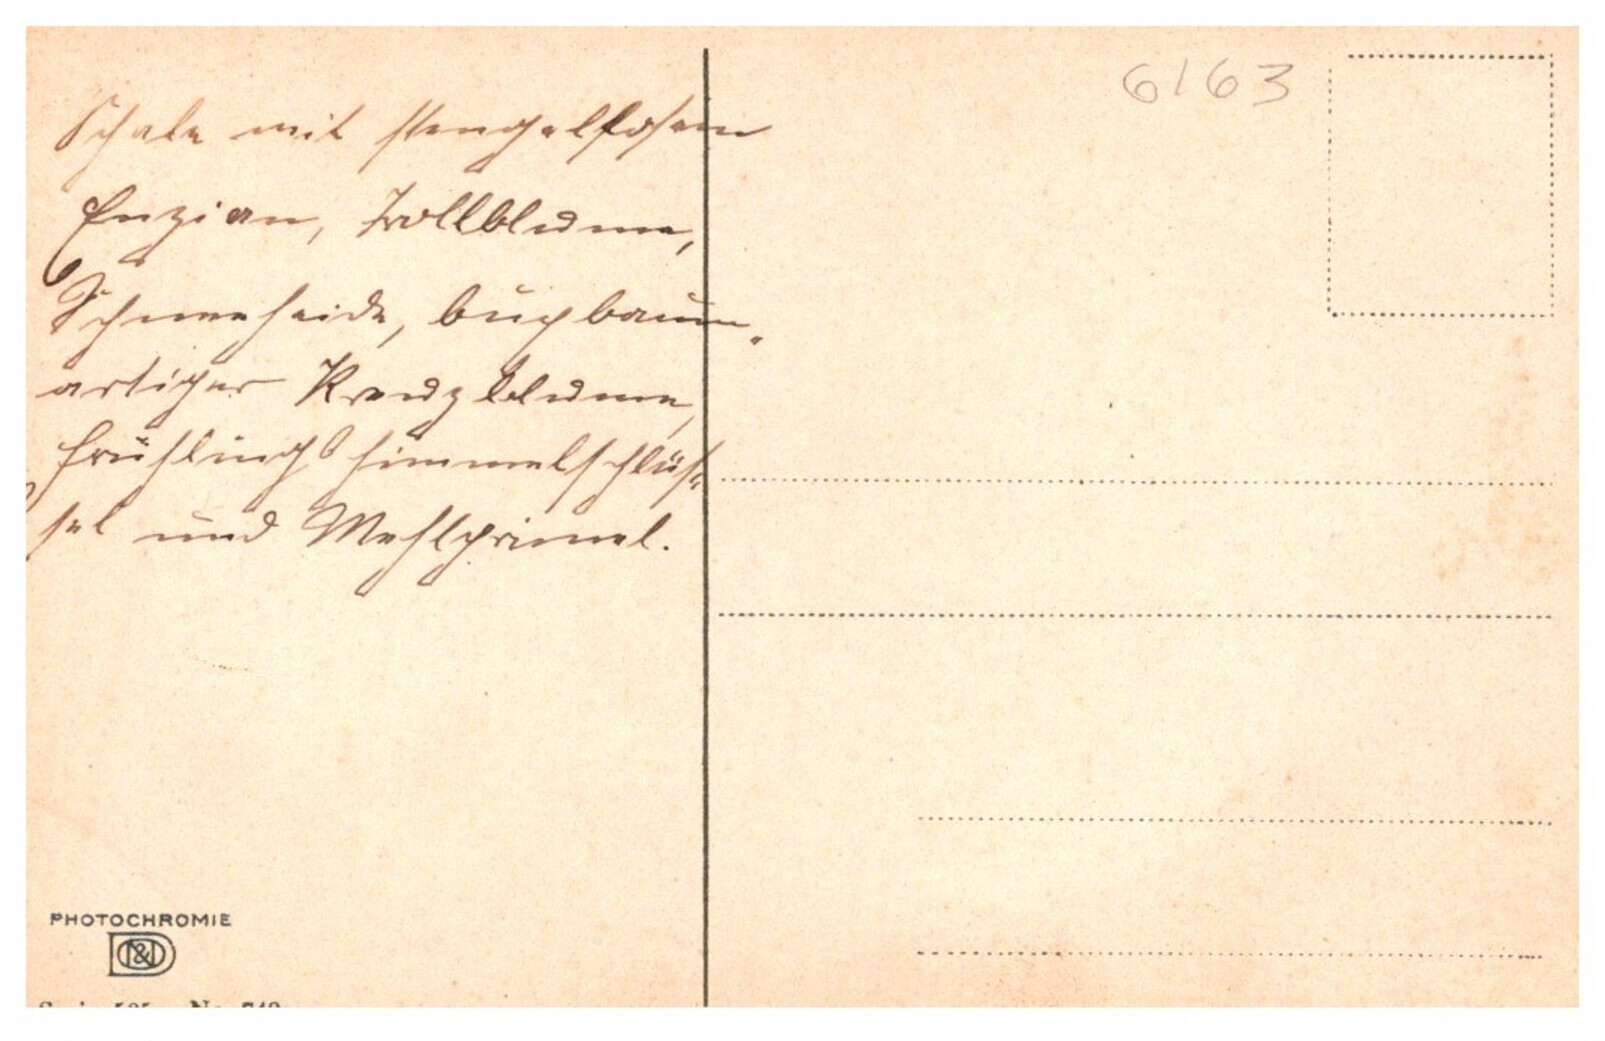 Schale mit stengellosem
Enzian, Trollblume,
Schneeheide, buxbaum-
artiger Kreuzblume,
Frühlings himmelschlüs-
sel und Mehlprimel.
6163
PHOTOCHROMIE